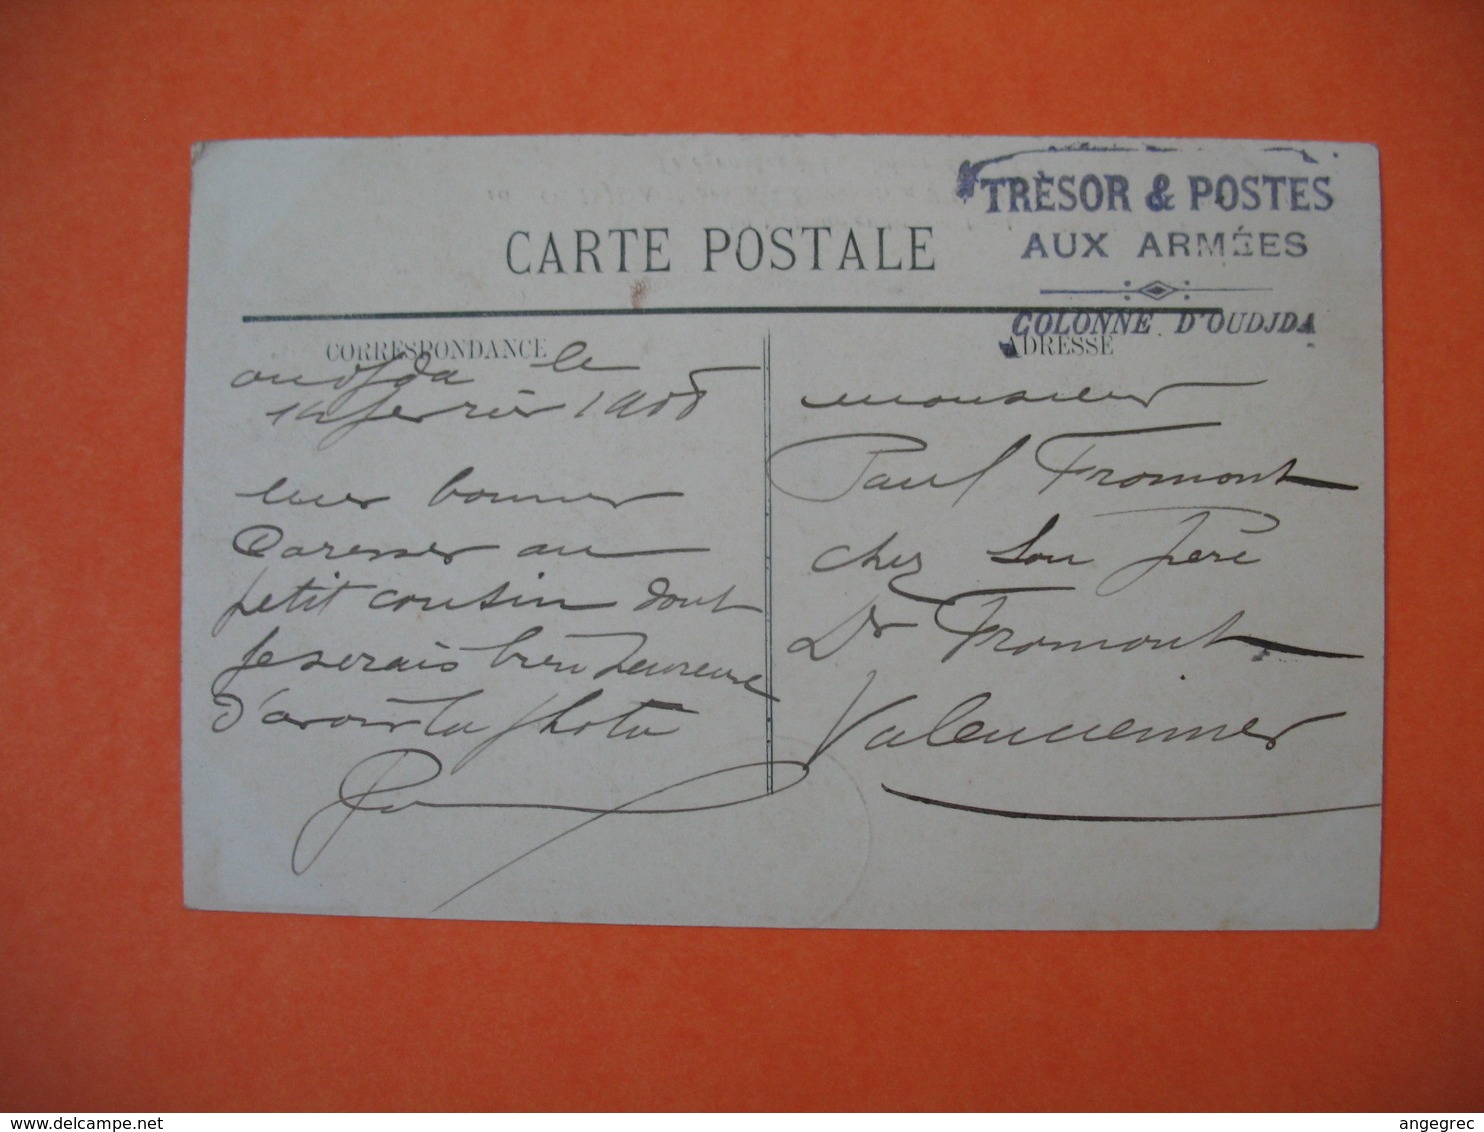 TRÈSOR & POSTES
AUX ARMÉES
COLONNE D'OUDJDA
CARTE POSTALE
CORRESPONDANCE
oudjda le
14 fevrier 1908
bonnes
Caresses au
petit cousin dont
je serais bien heureuse
d'avoir la photo
ADRESSE
monsieur
Paul Fromont
chez Son Père
Dr Fromont
Valenciennes
https://www.delcampe.net
angegrec